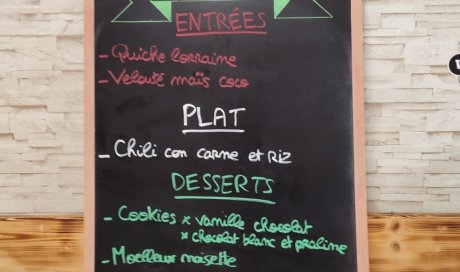 ENTRÉES
- Quiche lorraine
- Velouté maïs coco
PLAT
- Chili con carne et Riz
DESSERTS
- Cookies x vanille chocolat
x chocolat blanc et praline
- Moelleux noisette